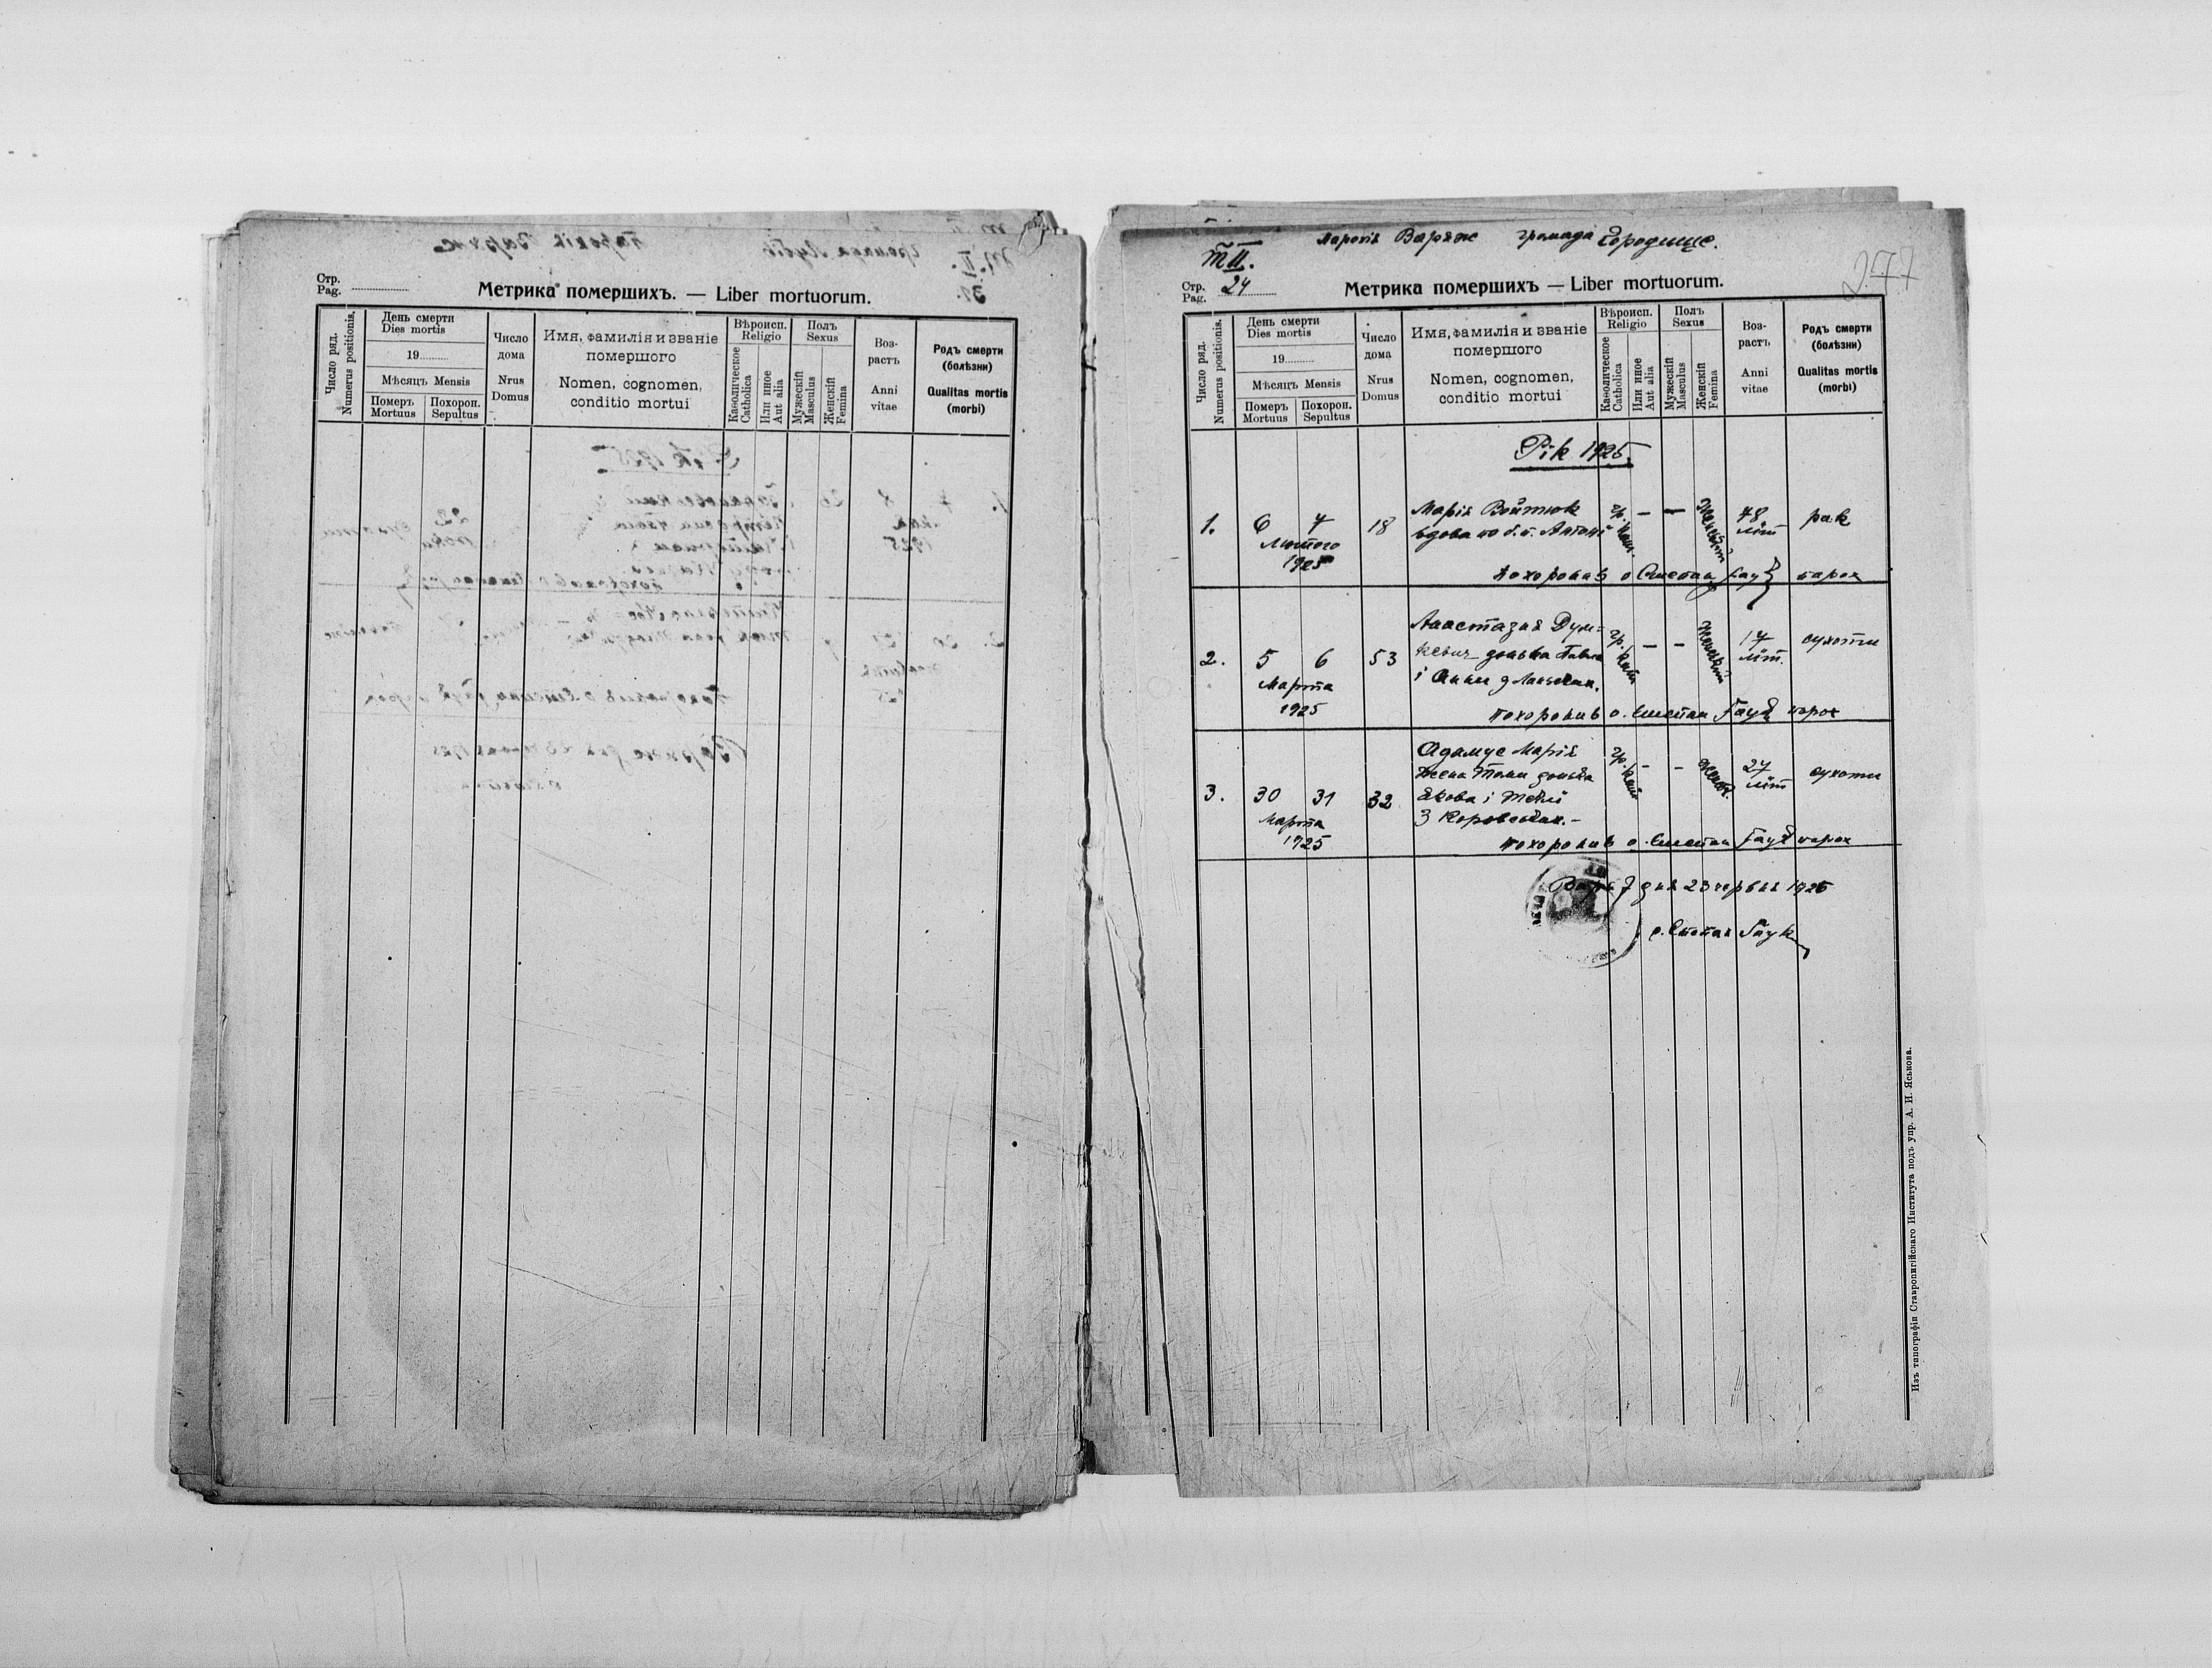 Стр.
Pag.
Метрика помершихъ. — Liber mortuorum.
Число ряд.
Numerus positionis.
День смерти
Dies mortis
19
Мѣсяцъ Mensis
Померъ
Mortuus
Похорон.
Sepultus
Число
дома
Nrus
Domus
Имя, фамилія и званіе
помершого
Nomen, cognomen,
conditio mortui
Вѣроисп.
Religio
Каѳолическое
Catholica
Или иное
Aut alia
Полъ
Sexus
Мужескій
Masculus
Женскій
Femina
Воз-
растъ
Anni
vitae
Родъ смерти
(болѣзни)
Qualitas mortis
(morbi)
парохія Варяж громада Городище.
Т II.
277
Стр.
Pag. 24
Метрика помершихъ — Liber mortuorum.
Число ряд.
Numerus positionis.
День смерти
Dies mortis
19
Мѣсяцъ Mensis
Померъ
Mortuus
Похорон.
Sepultus
Число
дома
Nrus
Domus
Имя, фамилія и званіе
помершого
Nomen, cognomen,
conditio mortui
Вѣроисп.
Religio
Каѳолическое
Catholica
Или иное
Aut alia
Полъ
Sexus
Мужескій
Masculus
Женскій
Femina
Воз-
растъ
Anni
vitae
Родъ смерти
(болѣзни)
Qualitas mortis
(morbi)
Рік 1925.
1. 6 7 18 Марія Войтюк гр. кат. — — Женьский 48 літ рак
Лютого
1925
вдова по б. п. Антоні
похоронив о Степан Гаук парох
2. 5 6 53 Анастазия Дум=
кевич донька Павла
і Анни
гр. кат — — Женьский 17 літ. сухоти
Марта
1925
похоронив о. Степан Гаук парох
3. 30 31 32 Адамус Марія
жена Томи донька
Якова і Теклі
З Коровецких.—
гр. кат — — женьс. 27 літ сухоти
Марта
1925
похоронив о. Степан Гаук парох
Варяж дня 23 червня 1925
о. Степан Гаук
Изъ типографіи Ставропигійскаго Института подъ упр. А. И. Яськова.